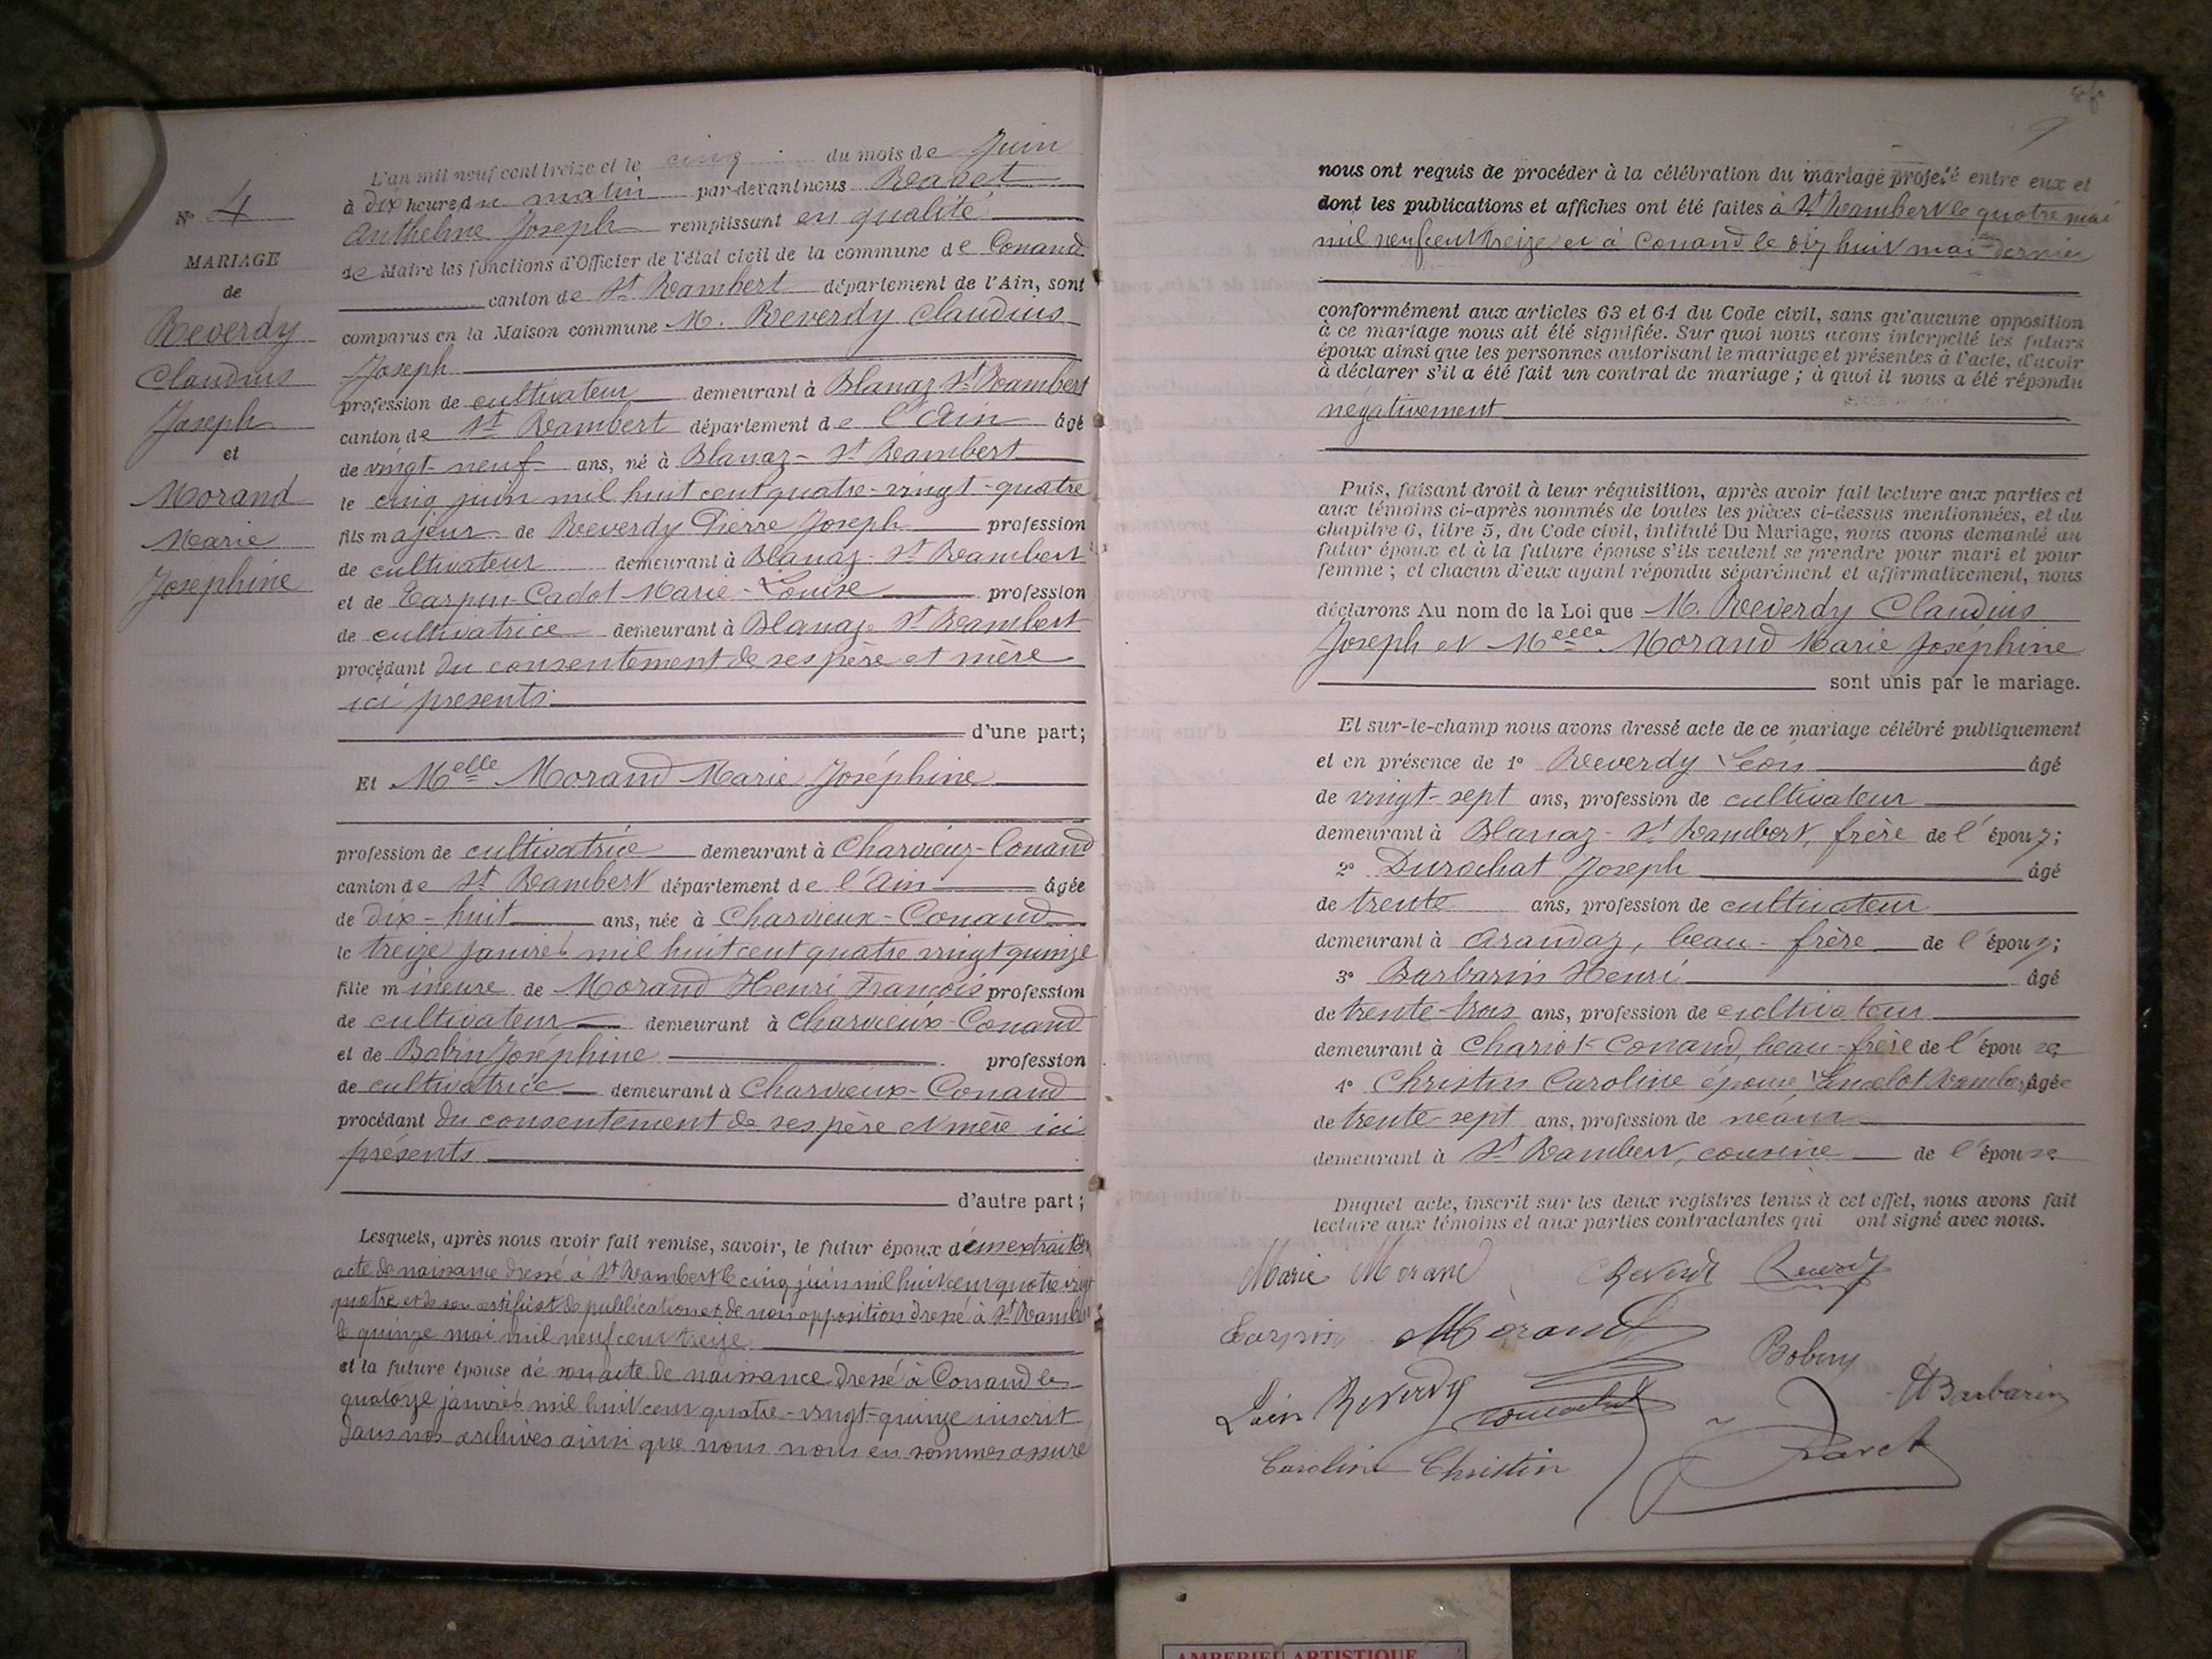 N° 4
MARIAGE
de
Reverdy
Claudius
Joseph
et
Morand
Marie
Joséphine
L'an mil neuf cent treize et le cinq du mois de Juin
à dix heures du matin par-devant nous Ravet
Anthelme Joseph remplissant en qualité
de Maire les fonctions d'Officier de l'état civil de la commune de Conand
canton de St Rambert département de l'Ain, sont
comparus en la Maison commune M. Reverdy Claudius
Joseph
profession de cultivateur demeurant à Blanaz St Rambert
canton de St Rambert département de l'Ain âgé
de vingt-neuf ans, né à Blanaz - St Rambert
le cinq juin mil huit cent quatre-vingt-quatre
fils majeur de Reverdy Pierre Joseph profession
de cultivateur demeurant à Blanaz - St Rambert
et de Tarpin-Cadot Marie-Louise profession
de cultivatrice demeurant à Blanaz St Rambert
procédant du consentement de ses père et mère
ici presents
d'une part;
Et Melle Morand Marie Joséphine
profession de cultivatrice demeurant à Charvieux-Conand
canton de St Rambert département de l'Ain âgée
de dix-huit ans, née à Charvieux-Conand
le treize janvier mil huit cent quatre vingt quinze
fille mineure de Morand Henri François profession
de cultivateur demeurant à Charvieux-Conand
et de Bobin Joséphine profession
de cultivatrice demeurant à Charvieux-Conand
procédant du consentement de ses père et mère ici
présents
d'autre part;
Lesquels, après nous avoir fait remise, savoir, le futur époux d'un extrait de son
acte de naissance dressé à St Rambert le cinq juin mil huit cent quatre vingt
quatre et de son certificat de publication et de non opposition dressé à St Rambert
le quinze mai mil neuf cent treize
et la future épouse de son acte de naissance dressé à Conand le
quatorze janvier mil huit cent quatre-vingt-quinze inscrit
dans nos archives ainsi que nous nous en sommes assuré
9
nous ont requis de procéder à la célébration du mariage projeté entre eux et
dont les publications et affiches ont été faites à St Rambert le quatre mai
mil neuf cent treize et à Conand le dix huit mai dernier
conformément aux articles 63 et 64 du Code civil, sans qu'aucune opposition
à ce mariage nous ait été signifiée. Sur quoi nous avons interpellé les futurs
époux ainsi que les personnes autorisant le mariage et présentes à l'acte, d'avoir
à déclarer s'il a été fait un contrat de mariage ; à quoi il nous a été répondu
négativement
Puis, faisant droit à leur réquisition, après avoir fait lecture aux parties et
aux témoins ci-après nommés de toutes les pièces ci-dessus mentionnées, et du
chapitre 6, titre 5, du Code civil, intitulé Du Mariage, nous avons demandé au
futur époux et à la future épouse s'ils veulent se prendre pour mari et pour
femme ; et chacun d'eux ayant répondu séparément et affirmativement, nous
déclarons Au nom de la Loi que M. Reverdy Claudius
Joseph et Melle Morand Marie Joséphine
sont unis par le mariage.
Et sur-le-champ nous avons dressé acte de ce mariage célébré publiquement
et en présence de 1° Reverdy Léon âgé
de vingt-sept ans, profession de cultivateur
demeurant à Blanaz - St Rambert, frère de l'époux;
2° Durochat Joseph âgé
de trente ans, profession de cultivateur
demeurant à Arandaz, beau-frère de l'époux;
3° Barbarin Henri âgé
de trente-trois ans, profession de cultivateur
demeurant à Chariot-Conand, beau-frère de l'épouse
4° Christin Caroline épouse âgée
de trente-sept ans, profession de néant
demeurant à St Rambert, cousine de l'épouse
Duquel acte, inscrit sur les deux registres tenus à cet effet, nous avons fait
lecture aux témoins et aux parties contractantes qui ont signé avec nous.
Marie Morand Reverdy
Tarpin Morand Bobin
Léon Reverdy H Barbarin
Caroline Christin Ravet
AMBERIEU ARTISTIQUE